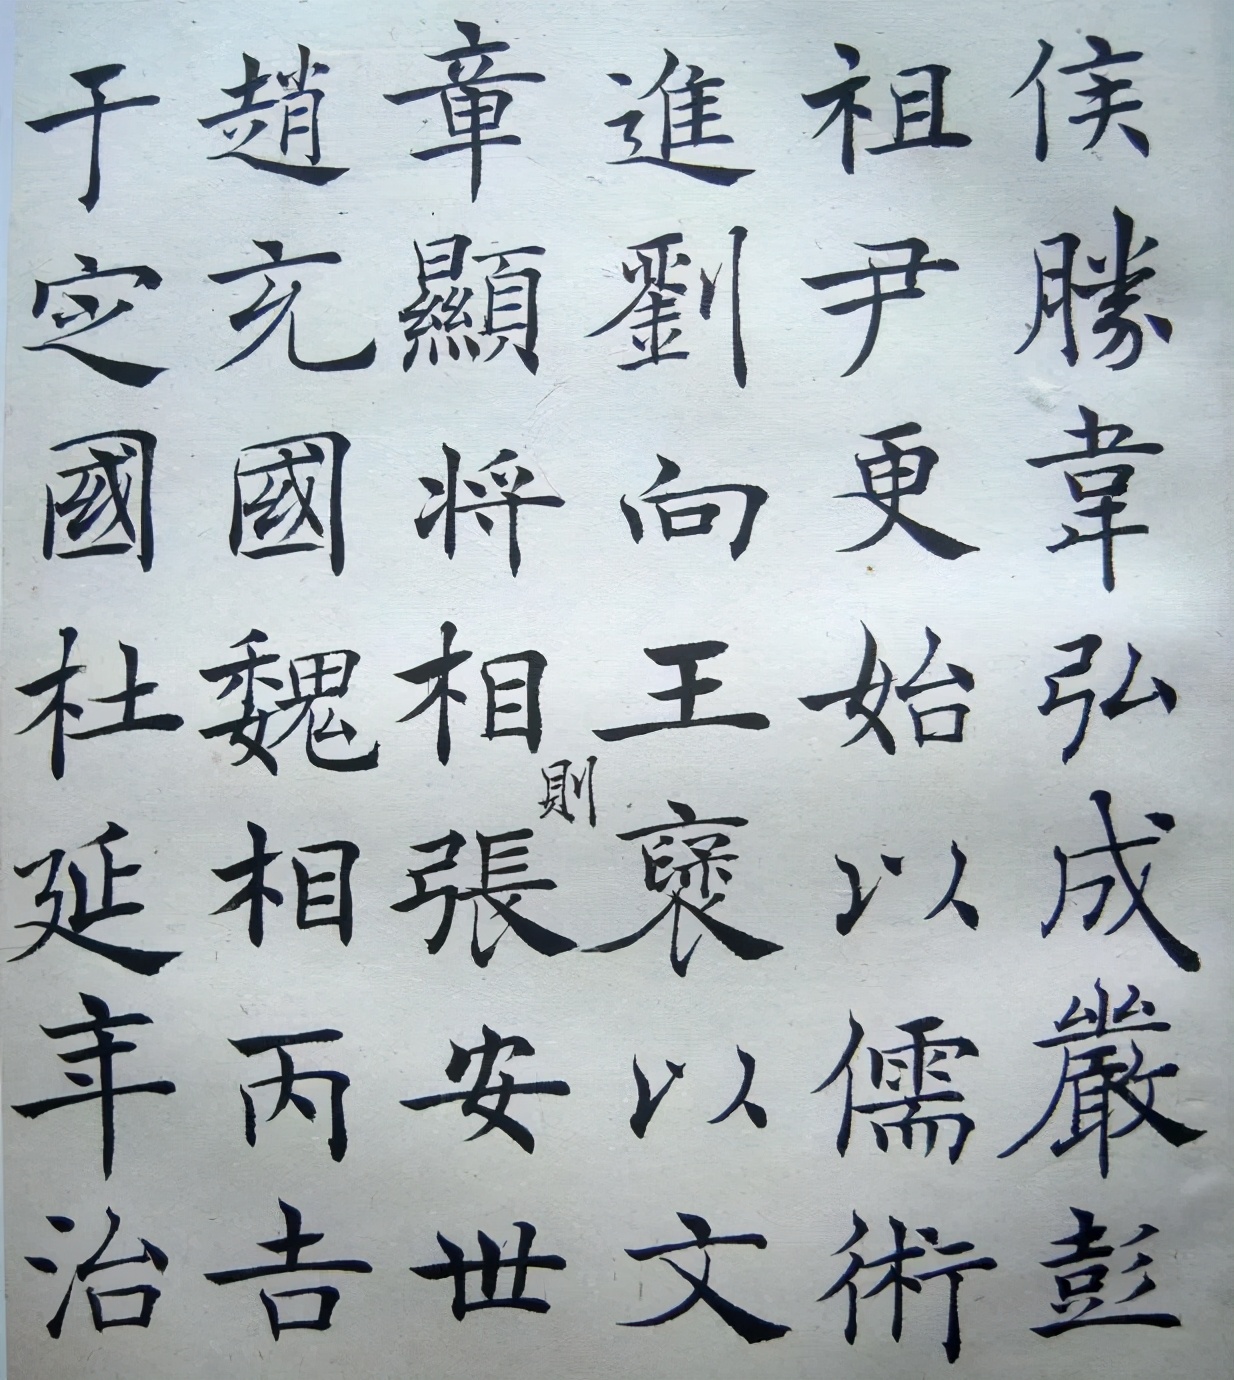 侯勝韋弘成嚴彭
祖尹更始以儒術
進劉向王襃以文
章顯将相則張安世
趙充國魏相丙吉
于定國杜延年治